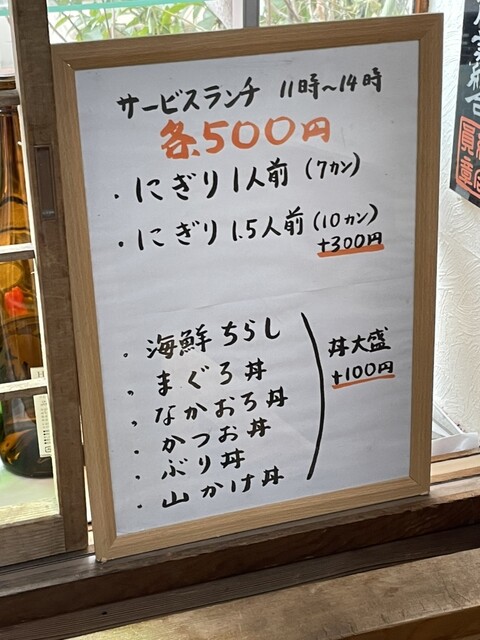 サービスランチ 11時〜14時
各500円
・にぎり1人前 (7カン)
・にぎり1.5人前 (10カン)
+300円
・海鮮ちらし
・まぐろ丼
・なかおち丼
・かつお丼
・ぶり丼
・山かけ丼
丼大盛
+100円
員章